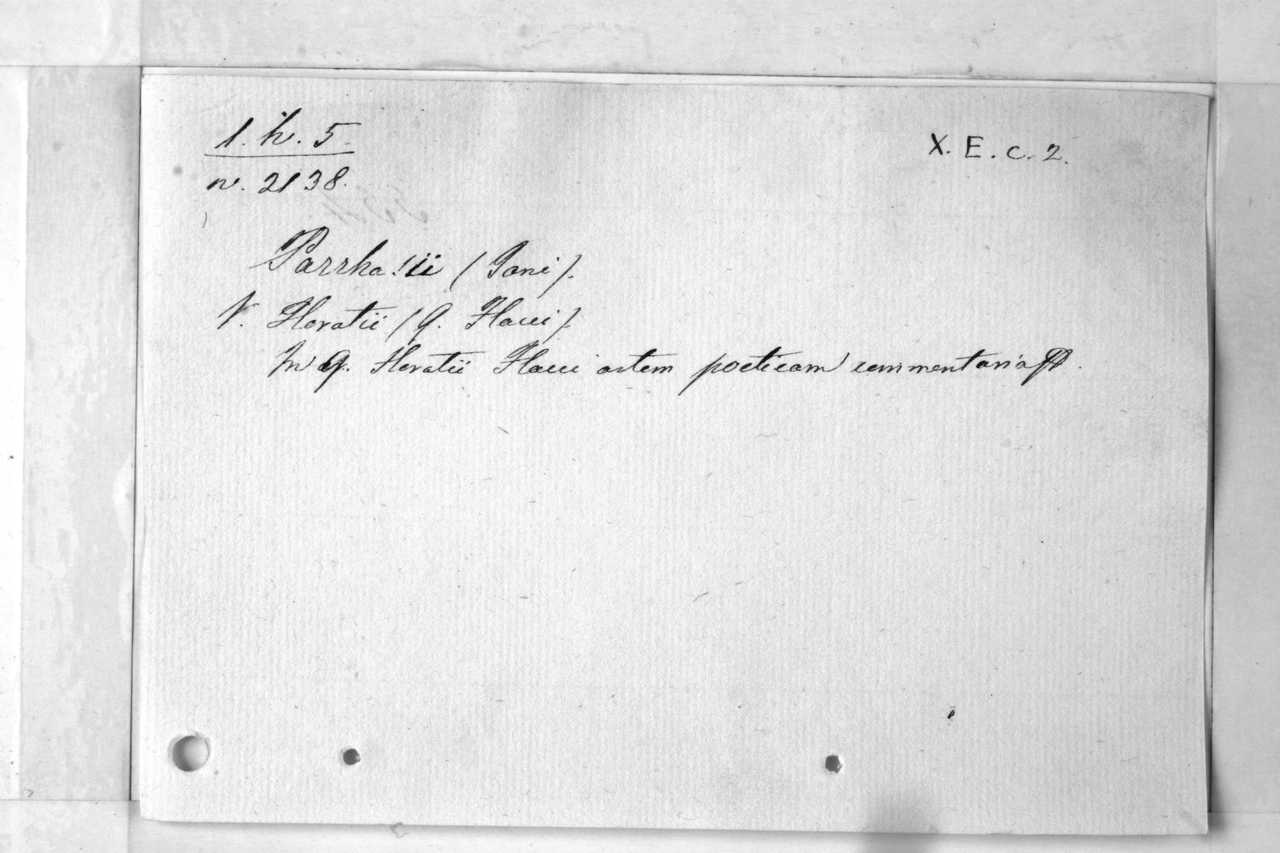 1. h. 5.
X. E. c. 2.
n. 2138.
Parrhasii (Jani).
V. Horatii (Q. Flacci).
In Q. Horatii Flacci artem poeticam commentaria